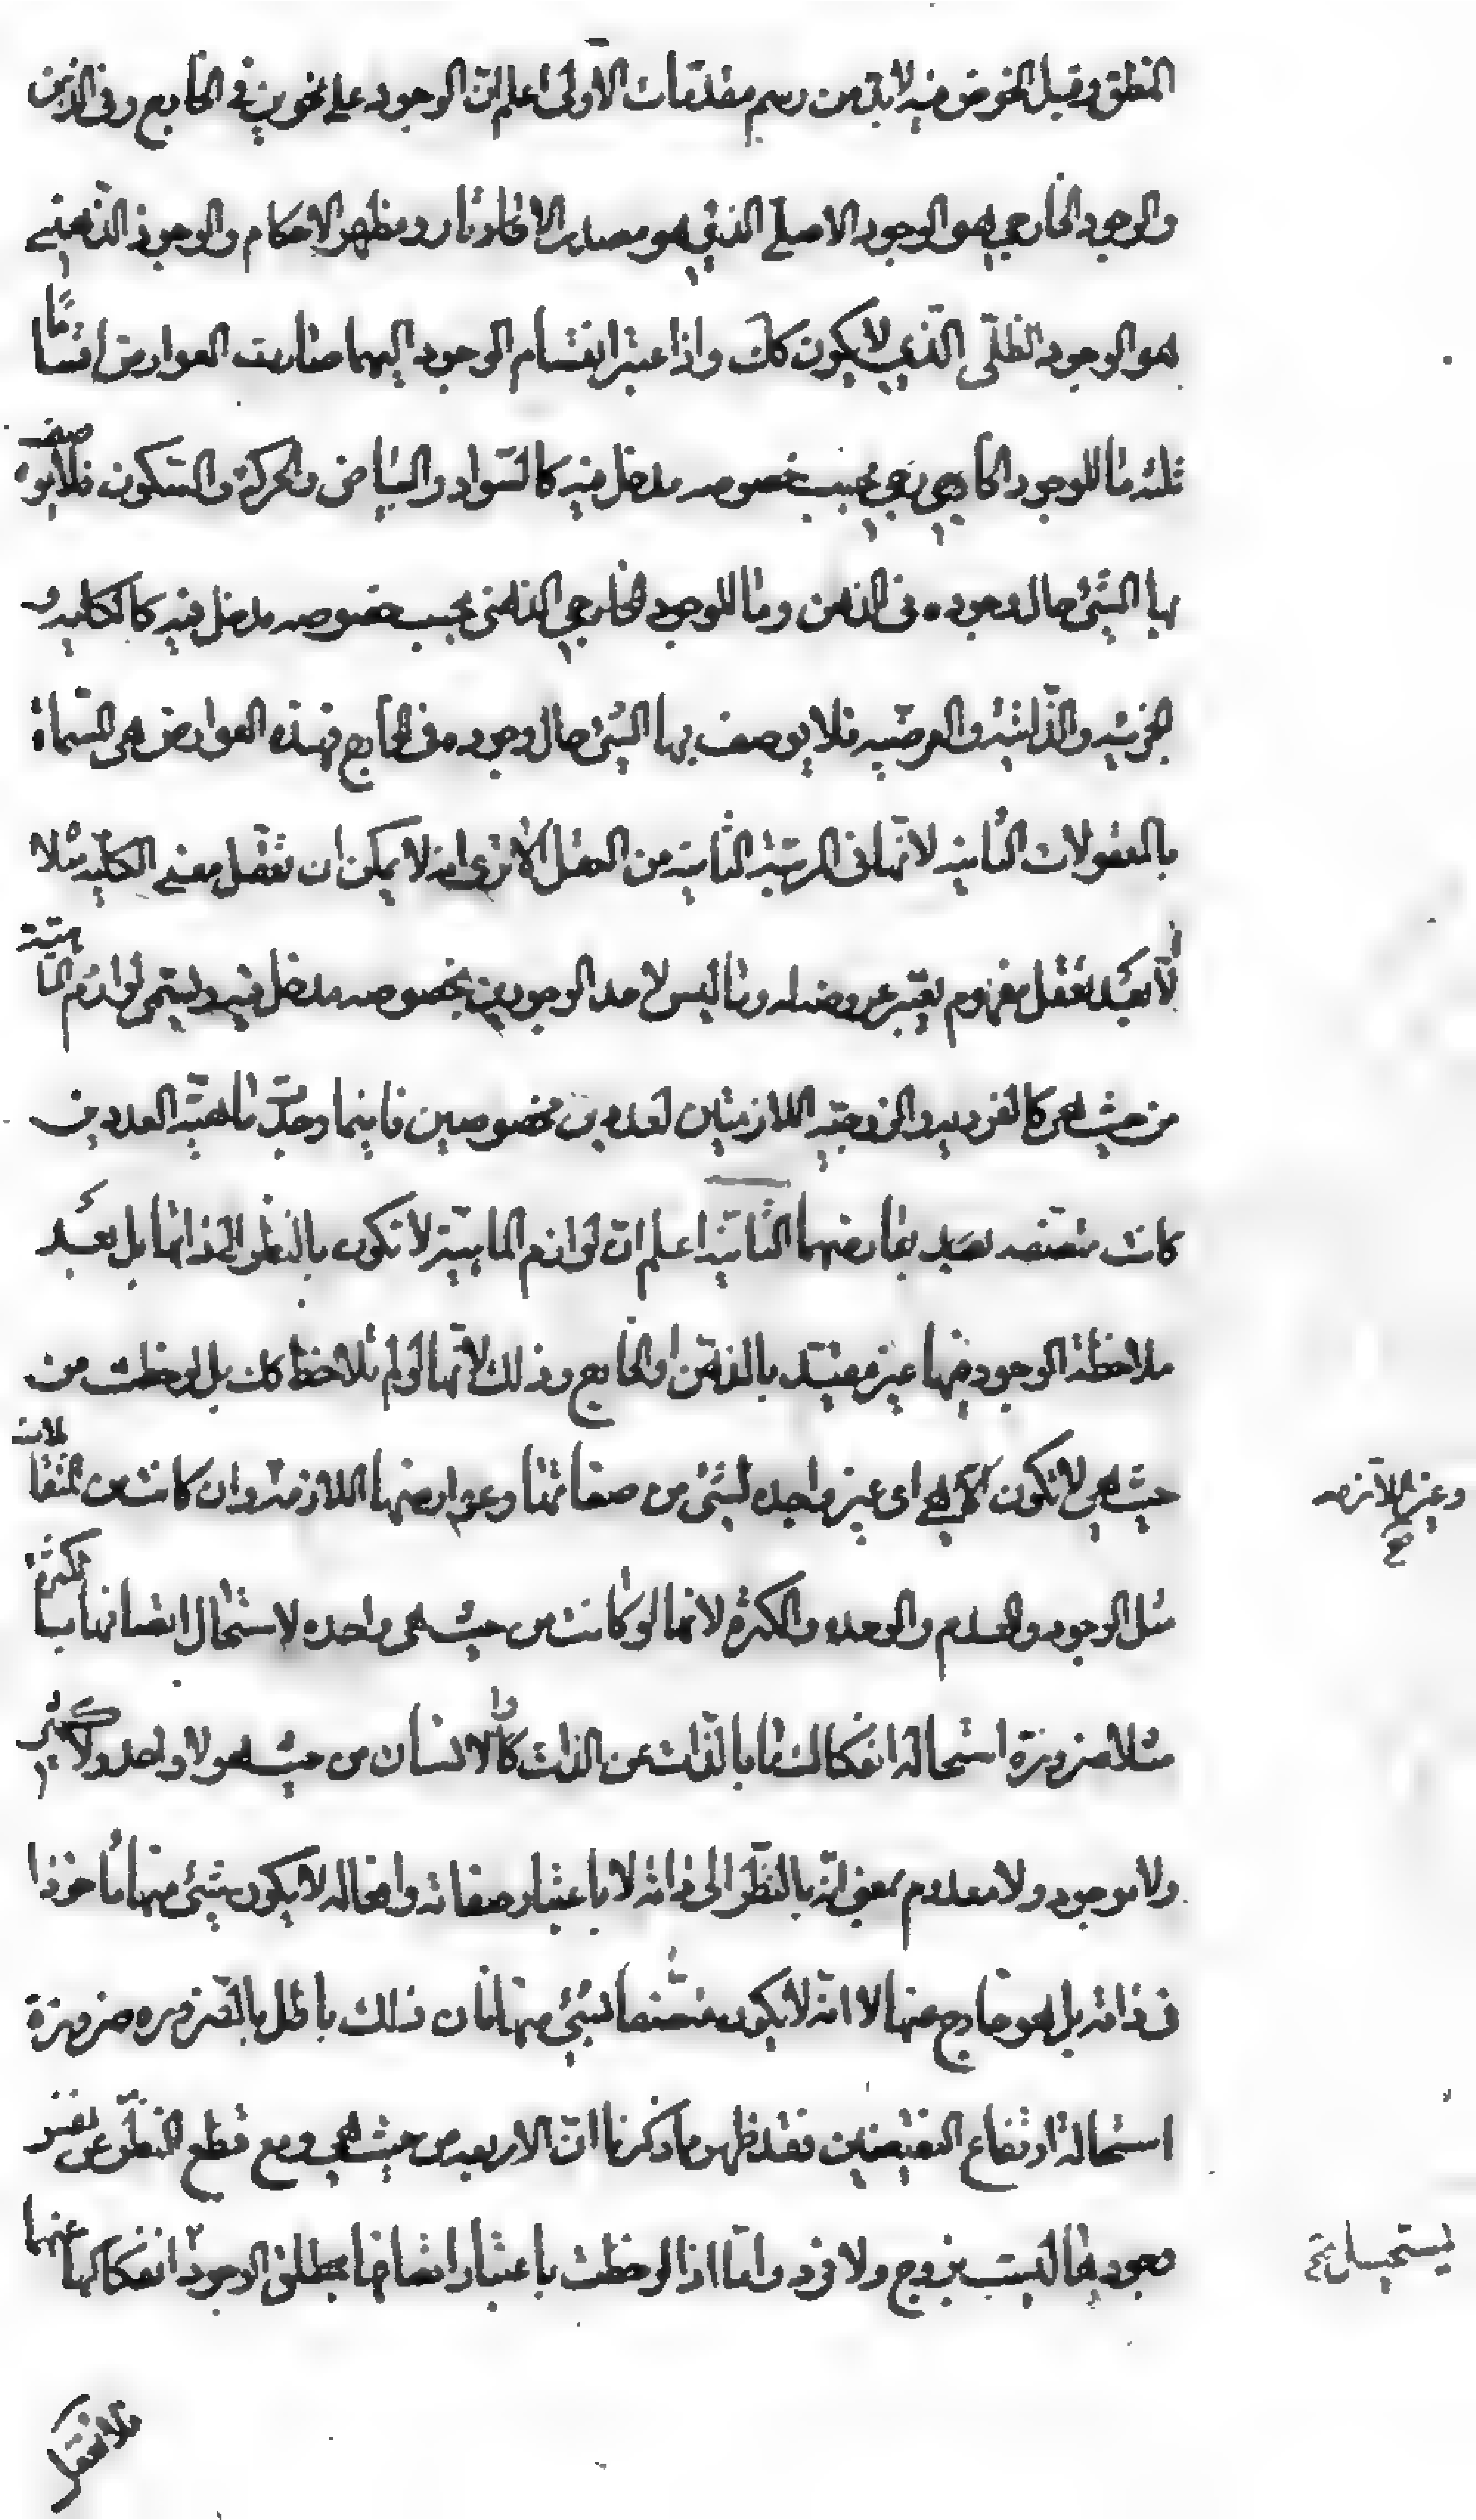 المنطق وقبل الخوض فيه لا بدّ من رسم مقدمات الأولى اعلم انّ الوجود على نحوين في الخارج وفي الذهن
والوجود الخارجي هو الوجود الاصلي الذي هو مصدر الاثار ومظهر الاحكام والوجود الذهني
هو الوجود الظلّي الّذي لا يكون كك واذا اعتبر انقسام الوجود اليهما صارت العوارض اقسامًا
ثلثه ما للوجود الخارجي بحسب خصوصه مدخل فيه كالسّواد والبياض والحركة والسّكون فلا يوصف
بها الشيئ حال وجوده في الذهن وما للوجود الذهني بحسب خصوصه مدخل فيه كالكليه و
الجزئيه والذّاتيّه والعرضيّه فلا يوصف بها الشيئ حال وجوده في الخارج فهذه العوارض هي المسماة
بالمعقولات الثانيه لانّها في المرتبة الثانيه من التعقل الا ترى انه لا يمكن ان تعقل معنى الكليّه مثلا
الّا بعد تعقل مفهوم يعتبر عروضها له وما ليس لاحد الوجودين بخصوصه مدخل فيه ويسمى لوازم الماهيّة
من حيث هي كالفرديه والزوجيّه اللازمتان لعددين مخصوصين فاينما وجدت ماهيّة العددين
كانت متصفه بعوارضها الثانيّة اعلم انّ لوازم الماهيّة لا تكون بالنظر الى ذاتها بل بعد
ملاحظة الوجود فيها غير مقيّد بالذهن او الخارج وذلك لانّها لو لم تلاحظ كك بل لوحظت من
حيث هي لا تكون الّا هي اى غير واجده لشيئ من صفاتها وعوارضها اللازمة وان كانت من المتقابلات
وغير اللازمه صح
مثل الوجود والعدم والوحده والكثرة لانها لو كانت من حيث هي واحده لاستحال اتصافها بالكثرة
مثلا ضرورة استحالة انفكاك ما بالذات عن الذات فالانسان من حيث هو لا واحد ولا كثير
ولا موجود ولا معدوم بمعنى انّه بالنظر الى ذاته لا باعتبار صفاته وافعاله لا يكون شيئ منها مأخوذا
في ذاته بل هو خارج عنها لا انّه لا يكون متّصفا بشيئ منها فان ذلك باطل بالضروره ضرورة
استحالة ارتفاع النقيضين فقد ظهر مما ذكرنا انّ الاربعه من حيث هي ومع قطع النظر عن نفس
وجودها ليست بزوج ولا فرد وامّا اذا لوحظت باعتبار اتصافها بمطلق الوجود انفكاكها عنها
يستحيل صح
فلا